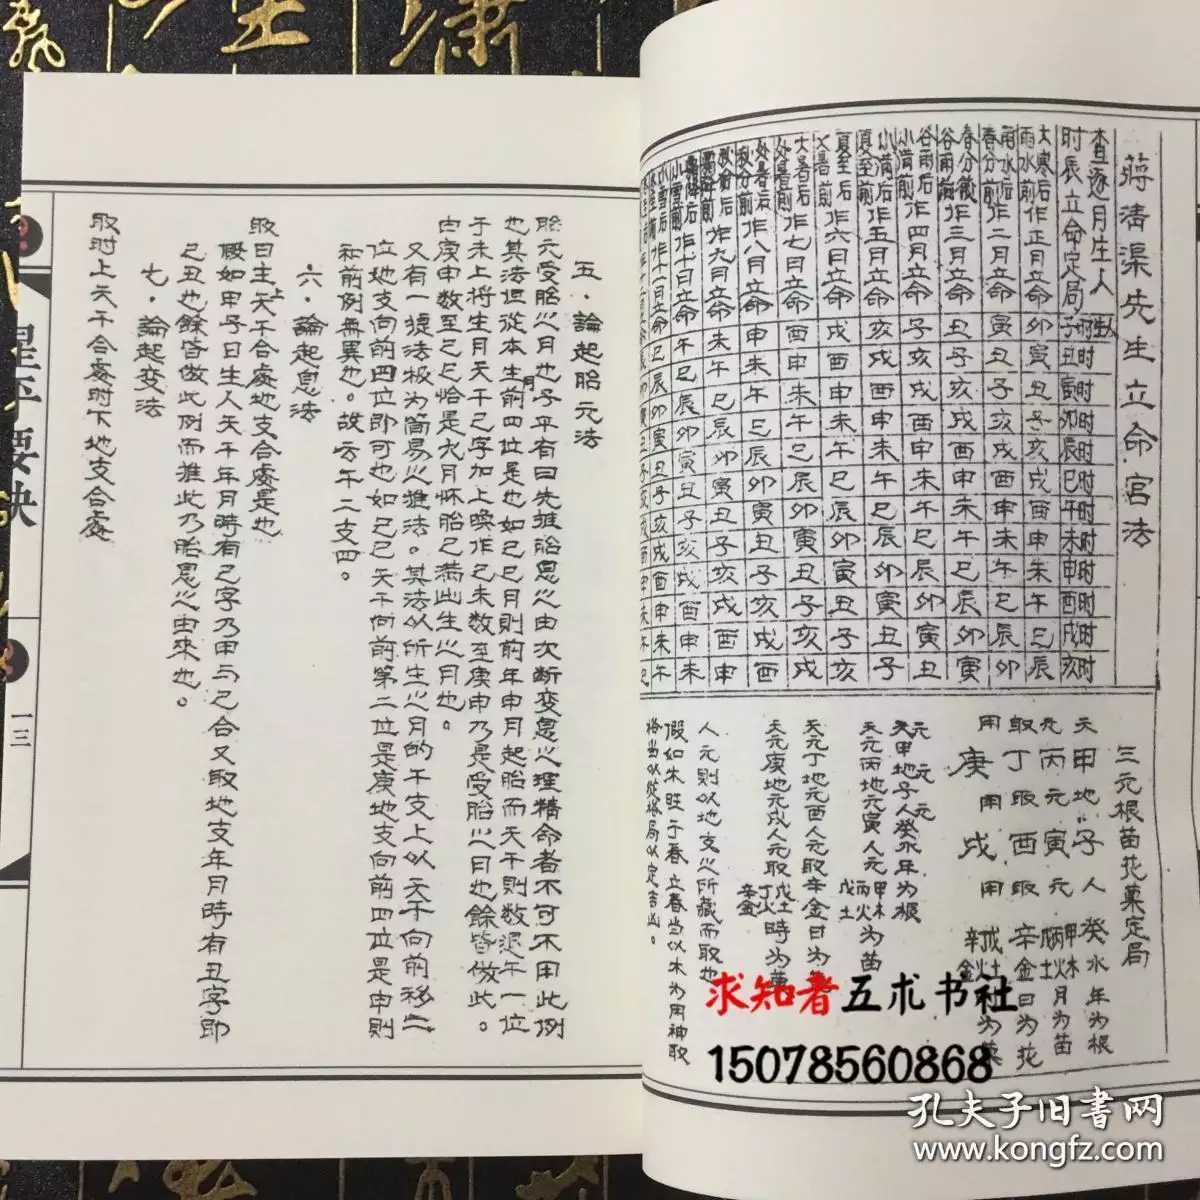 蔣清渠先生立命宮法
查逐月生人
时辰立命定局
子时
丑时
寅时
卯时
辰时
巳时
午时
未时
申时
酉时
戌时
亥时
大寒后
雨水前
作正月立命
卯寅丑子亥戌酉申未午巳辰
雨水后
春分前
作二月立命
寅丑子亥戌酉申未午巳辰卯
春分後
谷雨前
作三月立命
丑子亥戌酉申未午巳辰卯寅
谷雨后
小满前
作四月立命
子亥戌酉申未午巳辰卯寅丑
小满后
夏至前
作五月立命
亥戌酉申未午巳辰卯寅丑子
夏至后
大暑前
作六日立命
戌酉申未午巳辰卯寅丑子亥
大暑后
处暑前
作七月立命
酉申未午巳辰卯寅丑子亥戌
处暑后
秋分前
作八月立命
申未午巳辰卯寅丑子亥戌酉
秋分后
霜降前
作九月立命
未午巳辰卯寅丑子亥戌酉申
霜降后
小雪前
作十日立命
午巳辰卯寅丑子亥戌酉申未
三元根苗花菓定局
天甲地子人癸水年为根
元丙元寅元
甲木
丙火
戊土
月为苗
取丁取酉取辛金日为花
用庚用戌用
戊土
丁火
辛金
时为菓
元元元
天甲地子人癸水年为根
天元丙地元寅人元
甲木
丙火
戊土
为苗
天元丁地元酉人元取辛金日为花
天元庚地元戌人元取
戊土
丁火
辛金
時为菓
人元則以地支之所藏而取也
假如木旺于春立春当以木为用神取
格当以从格局以定吉凶。
五·論起胎元法
胎元受胎之月也子平有曰先推胎息之由次断变息之理精命者不可不用此例
也其法但從本生月前四位是也如己巳月則前年申月起胎而天干則数退午一位
于未上將生月天干己字加上喚作己未数至庚申乃是受胎之日也餘皆倣此。
由庚申数至己巳恰是九月怀胎已满此生之月也。
又有一捷法极为简易之推法。其法以所生之月的干支上以天干向前移一
位地支向前四位即可也如己巳天干向前第二位是庚地支向前四位是申則
和前例無異也。故云午二支四。
六·論起息法
取日主天干上合處地支合處是也
假如甲子日生人天干年月時有己字乃甲与己合又取地支年月時有丑字即
己丑也餘皆倣此例而推此乃胎息之由來也。
七·論起变法
取时上天干合處时下地支合處
星平要訣
一三
求知者五术书社
15078560868
孔夫子旧书网
www.kongfz.com